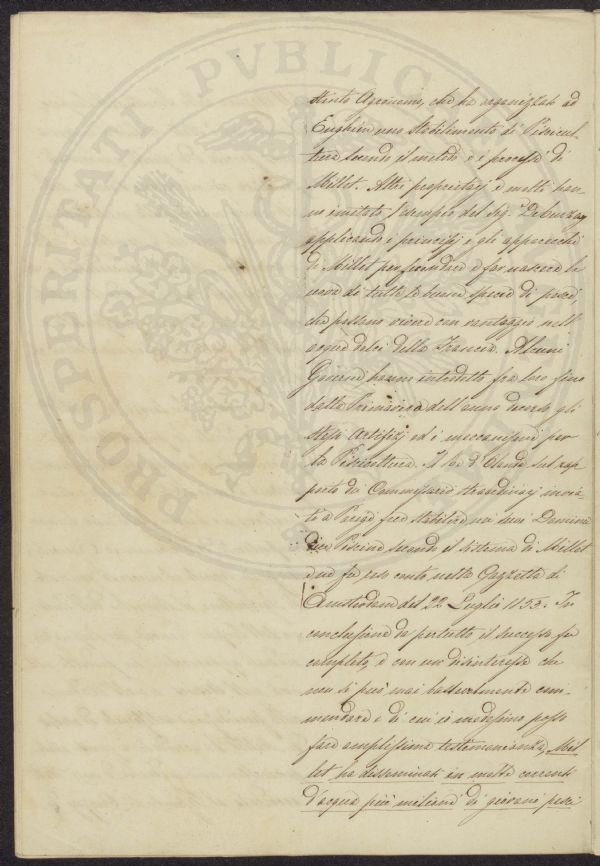 PROSPERITATI PVBLIC
stinto Agronomo, che ha organizzato ad
Enghien uno Stabilimento di Piscicul-
tura secondo il metodo e i processi di
Millet. Altri proprietarj e molti han-
no imitato l'esempio del Sig.
applicando i principj e gli apparecchi
di Millet per fecondare e far nascere le
uova di tutte le buone specie di pesci,
che possono vivere con vantaggio nell'
acque dolci della Francia. Alcuni
Governi hanno introdotto fra loro fino
dalla Primavera dell'anno decorso gli
stessi Artifizj ed i meccanismi per
la Piscicultura. Il Re d'Olanda sul rap-
porto di Commissarj straordinarj invia-
ti a Parigi fece stabilire nei suoi Dominii
dieci Piscine secondo il sistema di Millet
e ne fu reso conto nella Gazzetta di
Amsterdam del 22 Luglio 1853. In
conclusione da pertutto il successo fu
completo, e con un disinteresse che
non si può mai bastevolmente com-
mendare e di cui io medesimo posso
fare amplissima testimonianza, Mil-
let ha disseminati in molte correnti
d'acqua più milioni di giovani pesci